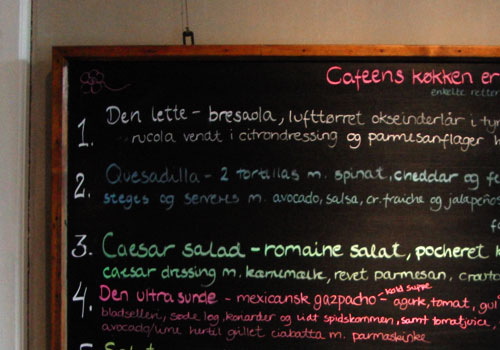 Cafeens køkken er
enkelte retter
1. Den lette - bresaola, lufttørret okseinderlår i tyn
rucola vendt i citrondressing og parmesanflager
2. Quesadilla - 2 tortillas m. spinat, cheddar og fe
steges og serveres m. avocado, salsa, cr. fraiche og jalapeños
3. Caesar salad - romaine salat, pocheret k
caesar dressing m. kærnemælk, revet parmesan, crouto
kold suppe
4. Den ultra sunde - mexicansk gazpacho - agurk, tomat, gul
bladselleri, søde løg, koriander og lidt spidskommen, samt tomatjuice
avocado/lime hertil grillet ciabatta m. parmaskinke